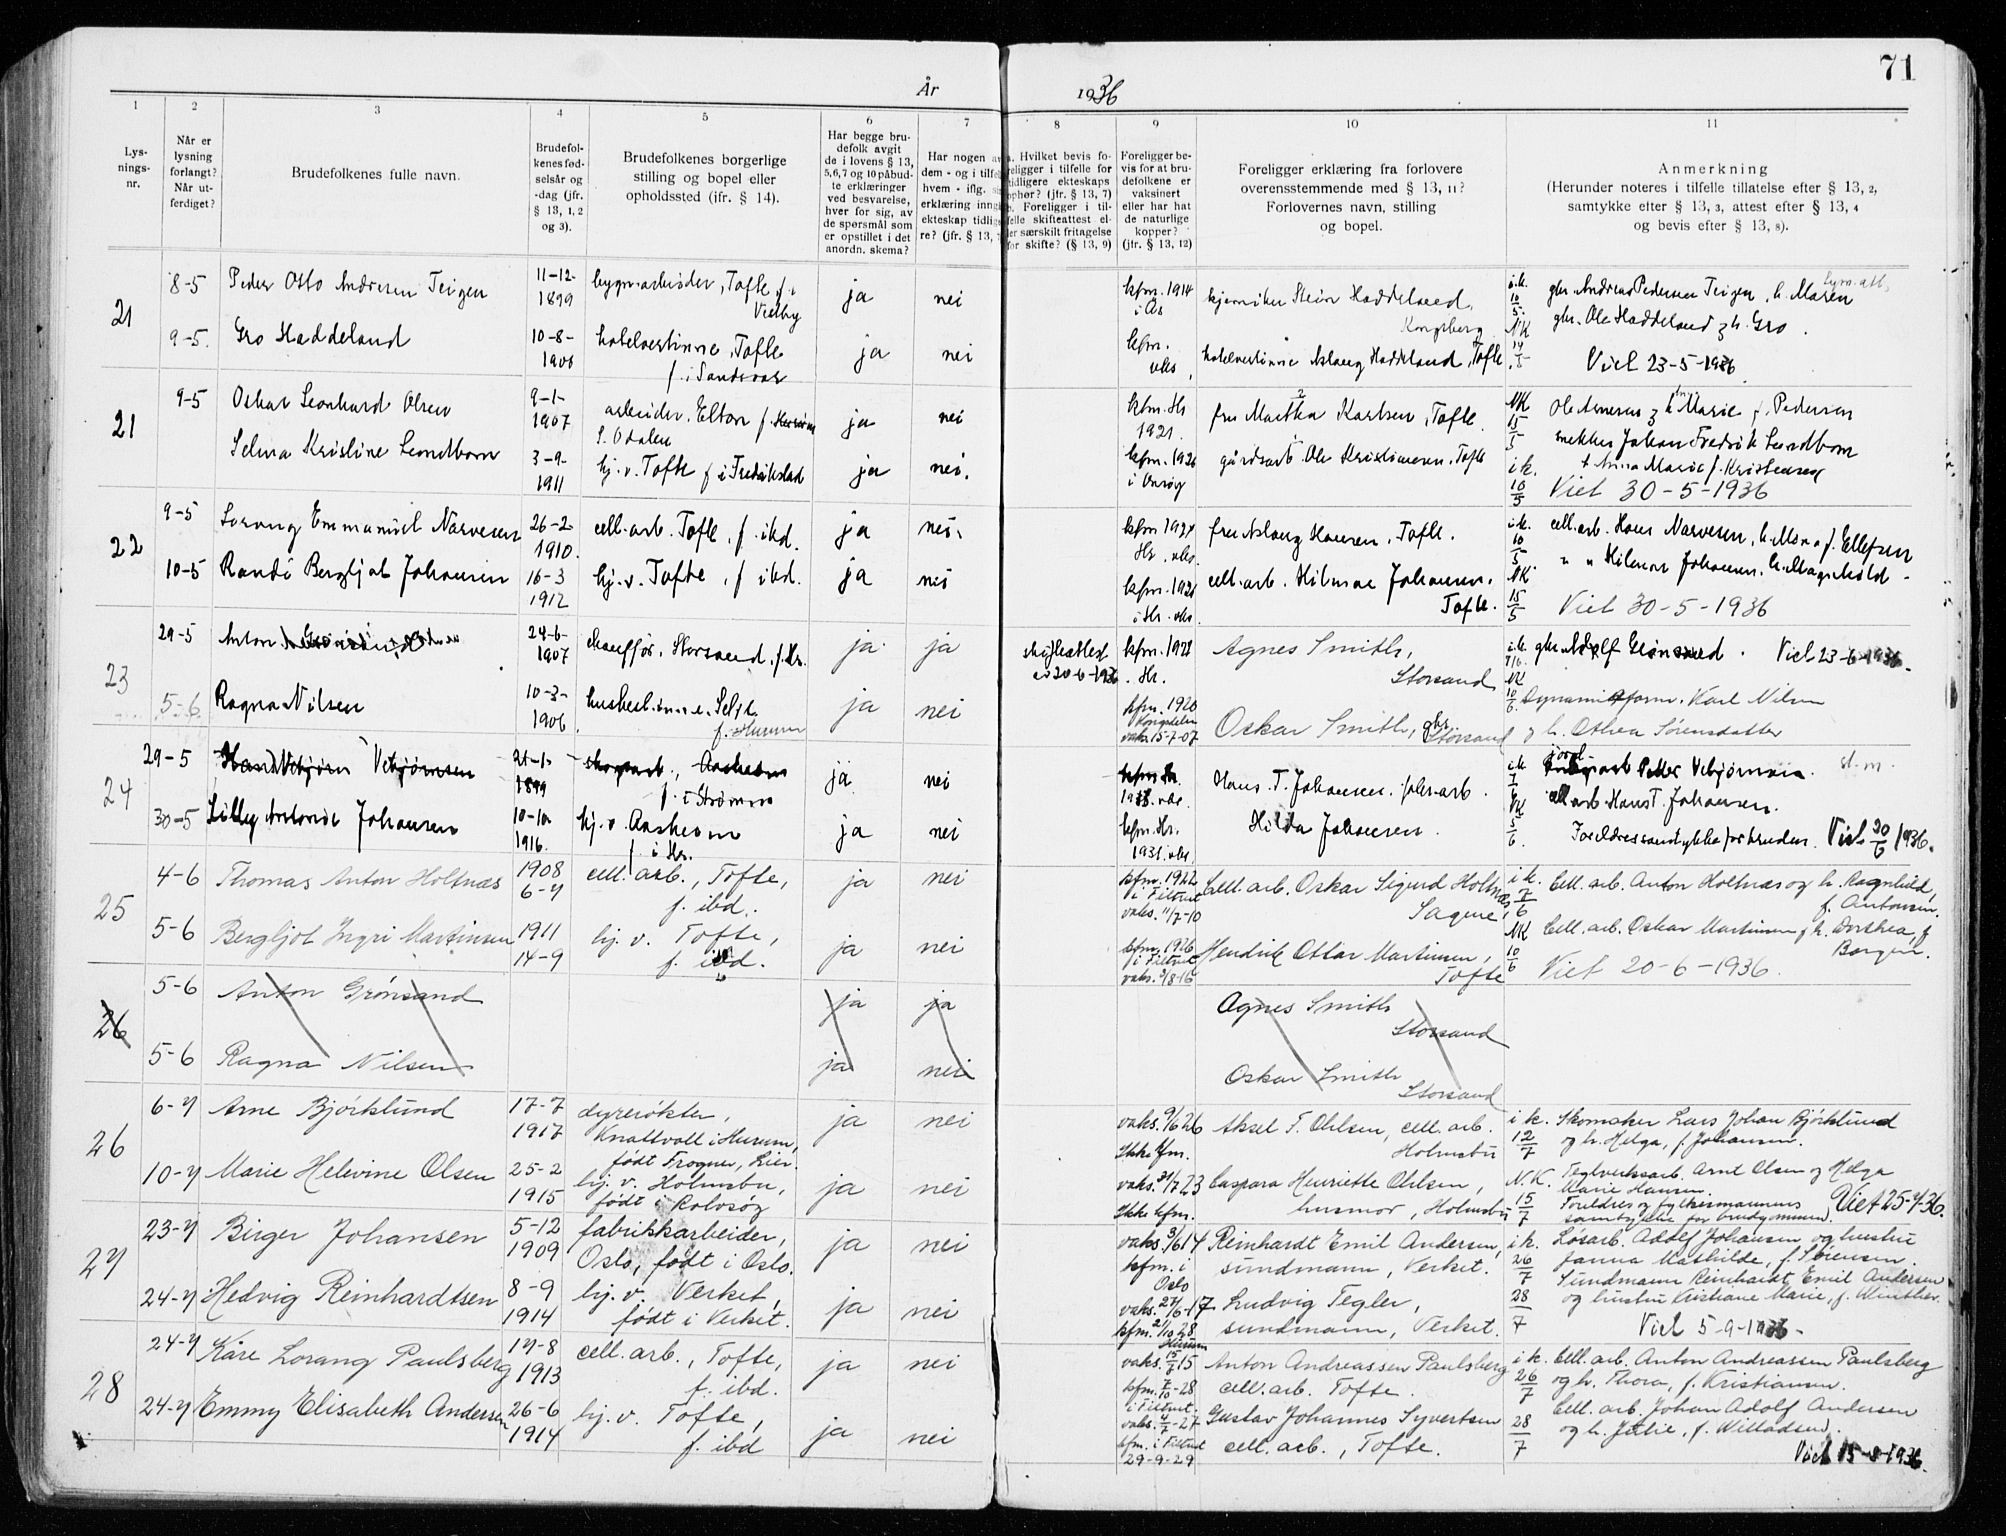 71
År 1936
1 2 3 4 5 6 7 8 9 10 11
Lys-
nings-
nr.
Når er
lysning
forlangt?
Når ut-
ferdiget?
Brudefolkenes fulle navn.
Brudefol-
kenes fød-
selsår og
-dag (jfr.
§ 13, 1, 2
og 3).
Brudefolkenes borgerlige
stilling og bopel eller
opholdssted (jfr. § 14).
Har begge bru-
defolk avgit
de i lovens § 13,
5,6,7 og 10 påbud-
te erklæringer
ved besvarelse,
hver for sig, av
de spørsmål som
er opstillet i det
anordn. skema?
Har nogen av
dem - og i tilfelle
hvem - iflg.
erklæring inngått
ekteskap tidlige-
re? (jfr. § 13,
Hvilket bevis fo-
religger i tilfelle for
tidligere ekteskaps
ophør? (jfr. § 13, 7)
Foreligger i til-
felle skifteattest el-
ler særskilt fritagelse
for skifte? (§ 13, 9)
Foreligger be-
vis for at bru-
defolkene er
vaksinert
eller har hat
de naturlige
kopper?
(jfr. § 13, 12)
Foreligger erklæring fra forlovere
overensstemmende med § 13, 11?
Forlovernes navn, stilling
og bopel.
Anmerkning
(Herunder noteres i tilfelle tillatelse efter § 13, 2,
samtykke efter § 13, 3, attest efter § 13, 4
og bevis efter § 13, 8).
21
8-5 Peder Otto Andresen Teigen 11-12-1899 bygn.arbeider, Tofte, f. i Vestby ja nei kfm. 1914 i Ås Stein Haddeland, Kongsberg i.k. 10/5 gbr. Andreas Pedersen Teigen, h. Maren
9-5. Gro Haddeland 10-8-1906 hotelvertinne, Tofte f. i Sandsvær ja nei kfm. vaks. hotelvertinne Aslaug Haddeland, Tofte NK 14/5 gbr. Ole Haddeland og h. Gro.
Viet 23-5-1936
21
9-5 Oskar Leonhard Olsen 9-1-1907 arbeider, Elton f. S. Odalen ja nei kfm. Hr 1921. fru Martha Karlsen, Tofte. NK 15/5 Ole Arnesen og h. Marie f. Pedersen
Selma Kristine Lundbom 3-9-1911 hj. v. Tofte f. i Fredrikstad ja nei. kfm. 1926 i Onsøy gårdsarb. Ole Kristiansen, Tofte i.k. 10/5 snekker Johan Fredrik Lundbom
+ Anna Marie f. Kristensen
Viet 30-5-1936
22
9-5 Lorang Emmanuel Narvesen 26-2-1910. cell.arb. Tofte, f. ibd. ja nei. kfm 1924 Hr. vaks. fru Aslaug Hansen, Tofte. i.k. 10/5 cell.arb. Hans Narvesen, h. Mona f. Ellefsen
10-5 Randi Bergljot Johansen 16-3 1912 hj. v. Tofte, f. ibd. ja nei kfm. 1928 i Hr. vaks. cell.arb. Hilmar Johansen, Tofte. NK 15/5 " " Hilmar Johansen, h. Magnhild
Viet 30-5-1936
23
29-5 Anton 24-6-1907 chauffør, Storsand, f. Hr. ja ja skifteattest 20-6-1936. kfm. 1928 Hr. Agnes Smith, Storsand i.k. 9/6 gbr. Adolf Grønsand. Viet 23-6-1936.
5-6 Ragna Nilsen 10-3-1906 f. Hurum ja nei kfm. 1920 vaks. 15-7-07 Oskar Smith, gbr. Storsand NK 10/6 Dynamitform. Karl Nilsen
og h. Othea Sørensdatter
24
29-5 Vebjørnsen 21-1-1899 skogsarb., Aasheim f. i Strømm ja nei kfm Hr. 1918. vaks. Hans T. Johansen, fabr.arb. i.k. Petter Vebjørnsen
30-5 Lilly Antonie Johansen 10-10-1916. hj. v. Aasheim f. i Hr. ja nei kfm. Hr. 1931. vaks. Hilda Johansen. NK 5/6. cell arb. Hans T. Johansen.
Foreldresamtykke for bruden. Viet 20/6 1936.
25
4-6 Thomas Anton Holtnæs 1908 6-7 cell. arb., Tofte, f. ibd. ja nei kfm. 1922 i Filtvet vaks. 11/7-10 Cell. arb. Oskar Sigurd Holtnæs, Sagene, i k. 7/6 Cell. arb. Anton Holtnæs og h. Ragnhild, f. Antonsen.
5-6 Bergljot Ingri Martinsen 1911 14-9 hj. v. Tofte, f. ibd. ja nei kfm. 1926 i Filtvet vaks. 5/8-16 Hendrik Ottar Martinsen, Tofte NK 10/6 Cell. arb. Oskar Martinsen og h. Dorthea, f. Borgen.
Viet 20-6-1936.
26
5-6 Anton Grønsand ja ja Agnes Smith Storsand
5-6 Ragna Nilsen ja nei Oskar Smith Storsand
26
6-7 Arne Bjørklund 17-7 1917 dyrerøkter, Knattvoll i Hurum, født Frogner, Lier. ja nei vaks. 9/6 26 Ikke kfm. Aksel T. Ohlsen, cell. arb. Holmsbu i k. 12/7 Skomaker Lars Johan Bjørklund
og h. Helga, f. Johansen.
10-7 Marie Helevine Olsen 25-2 1915 hj. v. Holmsbu, født i Rolvsøy ja nei vaks. 31/7 23 Ikke kfm. Caspara Henriette Ohlsen, husmor, Holmsbu N.K. 15/7 Teglverksarb. Arnt Olsen og Helga
Marie Hansen.
Foreldres og fylkesmannens
samtykke for brudgommen. Viet 25-7-36.
27
23-7 Birger Johansen 5-12 1909 fabrikkarbeider, Oslo, født i Oslo. ja nei vaks. 3/6 14 kfm. i Oslo Reinhardt Emil Andersen, sundmann, Verket. i k. 26/7 Løsarb. Adolf Johansen og hustru
Janna Mathilde, f. Sørensen.
24-7 Hedvig Reinhardtsen 8-9 1914 hj. v. Verket, født i Verket. ja nei vaks. 27/6-17 kfm. 2/10 28 Hurum Ludvig Tegler, sundmann, Verket. 28/7 Sundmann Reinhardt Emil Andersen
og hustru Kristiane Marie, f. Winther.
Viet 5-9-1936-
28
24-7 Kåre Lorang Paulsberg 17-8 1913 cell. arb., Tofte, f. ibd. ja nei vaks. 15/7 15 kfm. 7/10-28 i Filtvet. Anton Andreassen Paulsberg cell. arb. Tofte. i k. 26/7 Cell. arb. Anton Andreassen Paulsberg
og h. Thora, f. Kristiansen.
24-7 Emmy Elisabeth Andersen 26-6 1914 hj. v. Tofte, f. ibd ja nei vaks. 4/7-27 kfm. i Filtvet 29-9-29 Gustav Johannes Syvertsen cell. arb., Tofte. 28/7 Cell. arb. Johan Adolf Andersen
og h. Julie, f. Willadsen.
Viet 15-8-1936.